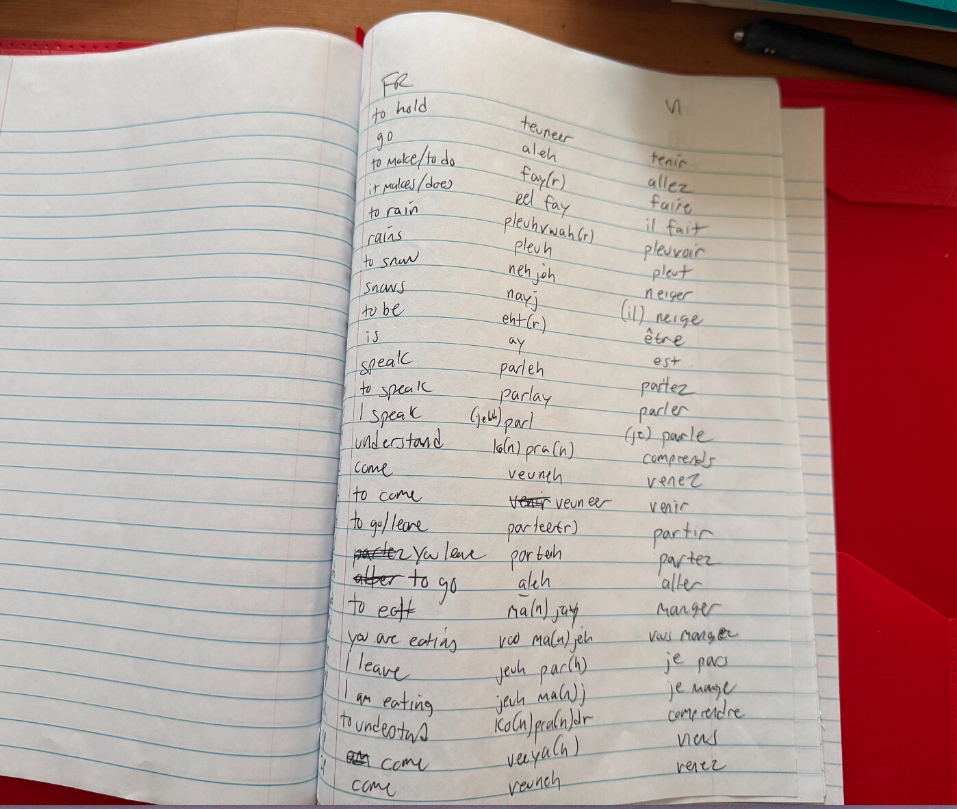 FR VI
to hold teuneer tenir
go aleh allez
to make/to do fay(r) faire
it makes/does eel fay il fait
to rain pleuhvwah(r) pleuvoir
rains pleuh pleut
to snow neh jeh neiger
snows nayj (il) neige
to be eht(r) être
is ay est
speak parleh parlez
to speak parlay parler
I speak (jeuh) parl (je) parle
understand ko(n) pra(n) comprends
come veuneh venez
to come veuneer venir
to go/leave partee(r) partir
you leave parteh partez
to go aleh aller
to eat ma(n) jay manger
you are eating voo ma(n) jeh vous mangez
I leave jeuh par(h) je pars
I am eating jeuh ma(n)j je mange
to understand ko(n)pra(n)dr comprendre
come veeya(n) viens
come veuneh venez